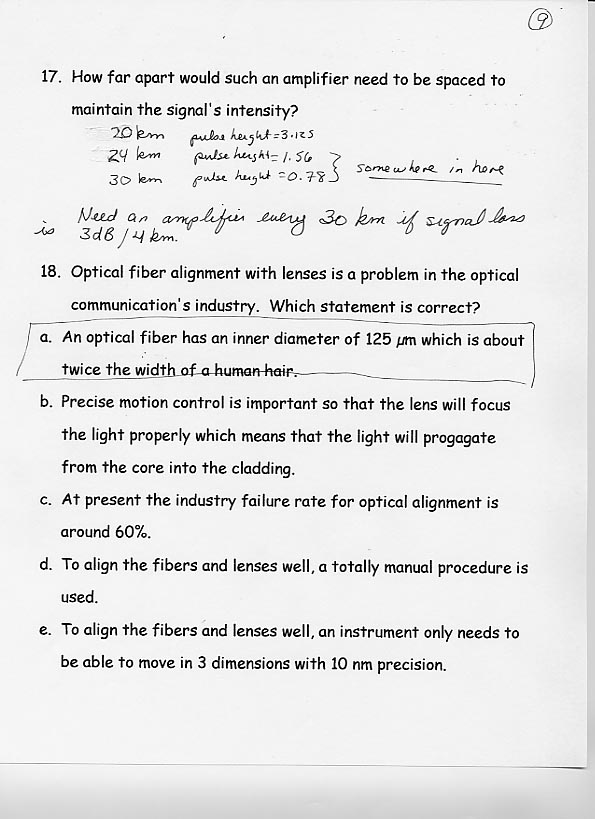 9
17. How far apart would such an amplifier need to be spaced to
maintain the signal's intensity?
20 km pulse height=3.125
24 km pulse height=1.56
30 km pulse height=0.78 } somewhere in here
Need an amplifier every 30 km if signal loss
is 3dB/4 km.
18. Optical fiber alignment with lenses is a problem in the optical
communication's industry. Which statement is correct?
a. An optical fiber has an inner diameter of 125 μm which is about
twice the width of a human hair.
b. Precise motion control is important so that the lens will focus
the light properly which means that the light will progagate
from the core into the cladding.
c. At present the industry failure rate for optical alignment is
around 60%.
d. To align the fibers and lenses well, a totally manual procedure is
used.
e. To align the fibers and lenses well, an instrument only needs to
be able to move in 3 dimensions with 10 nm precision.